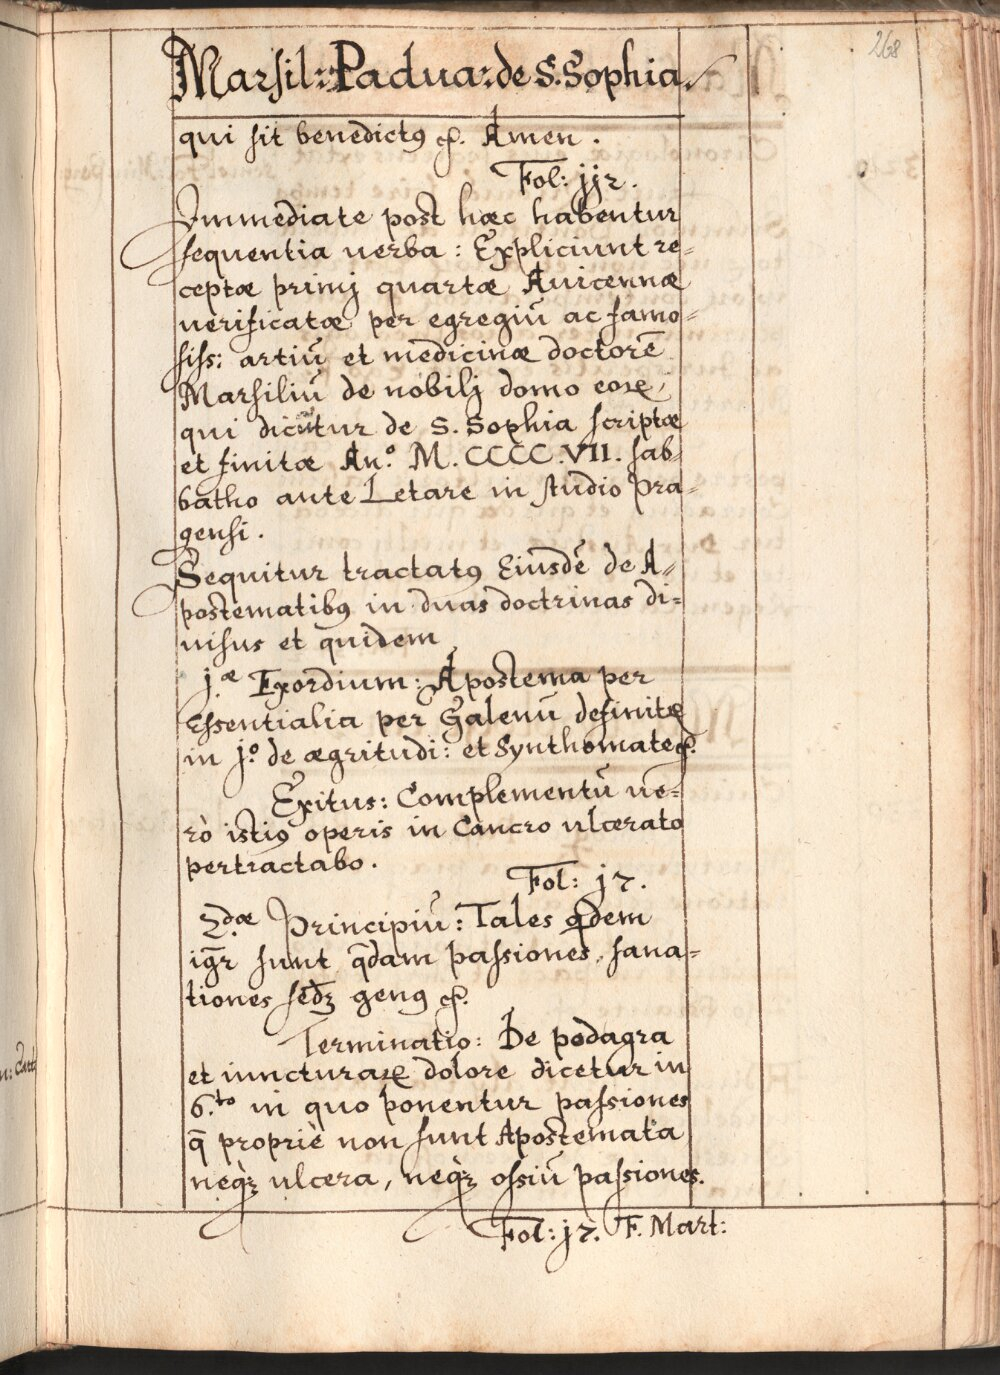 268
Marsil: Padua: de S. Sophia.
qui sit benedictꝰ ꝛc. Amen.
Fol: jj2.
Immediate post hæc habentur
sequentia uerba: Expliciunt re-
ceptæ primj quartæ Auicennæ
uerificatæ per egregiū ac famo-
siss: artiū et medicinæ doctorē
Marsiliū de nobilj domo eoꝝ,
qui dicūtur de S. Sophia scriptæ
et finitæ An.º M. CCCC. VII. sab-
batho ante Letare in studio Pra-
gensi.
Sequitur tractatꝰ Eiusdē de A-
postematibꝰ in duas doctrinas di-
uisus et quidem
j.æ Exordium: Apostema per
Essentialia per Galenū definitæ
in j.º de ægritudi: et Synthomate ꝛc.
Exitus: Complementū ue-
rò istiꝰ operis in Cancro ulcerato
pertractabo.
Fol: j7.
2.dæ Principiū: Tales qdem
igr̄ sunt q̄dam passiones, sana-
tiones sedꝫ genꝰ ꝛc.
Terminatio: De podagra
et iuncturaꝝ dolore dicetur in
6.to in quo ponentur passiones
q̄ propriè non sunt Apostemata
neqꝫ ulcera, neqꝫ ossiū passiones.
Fol: j7. F. Mart: